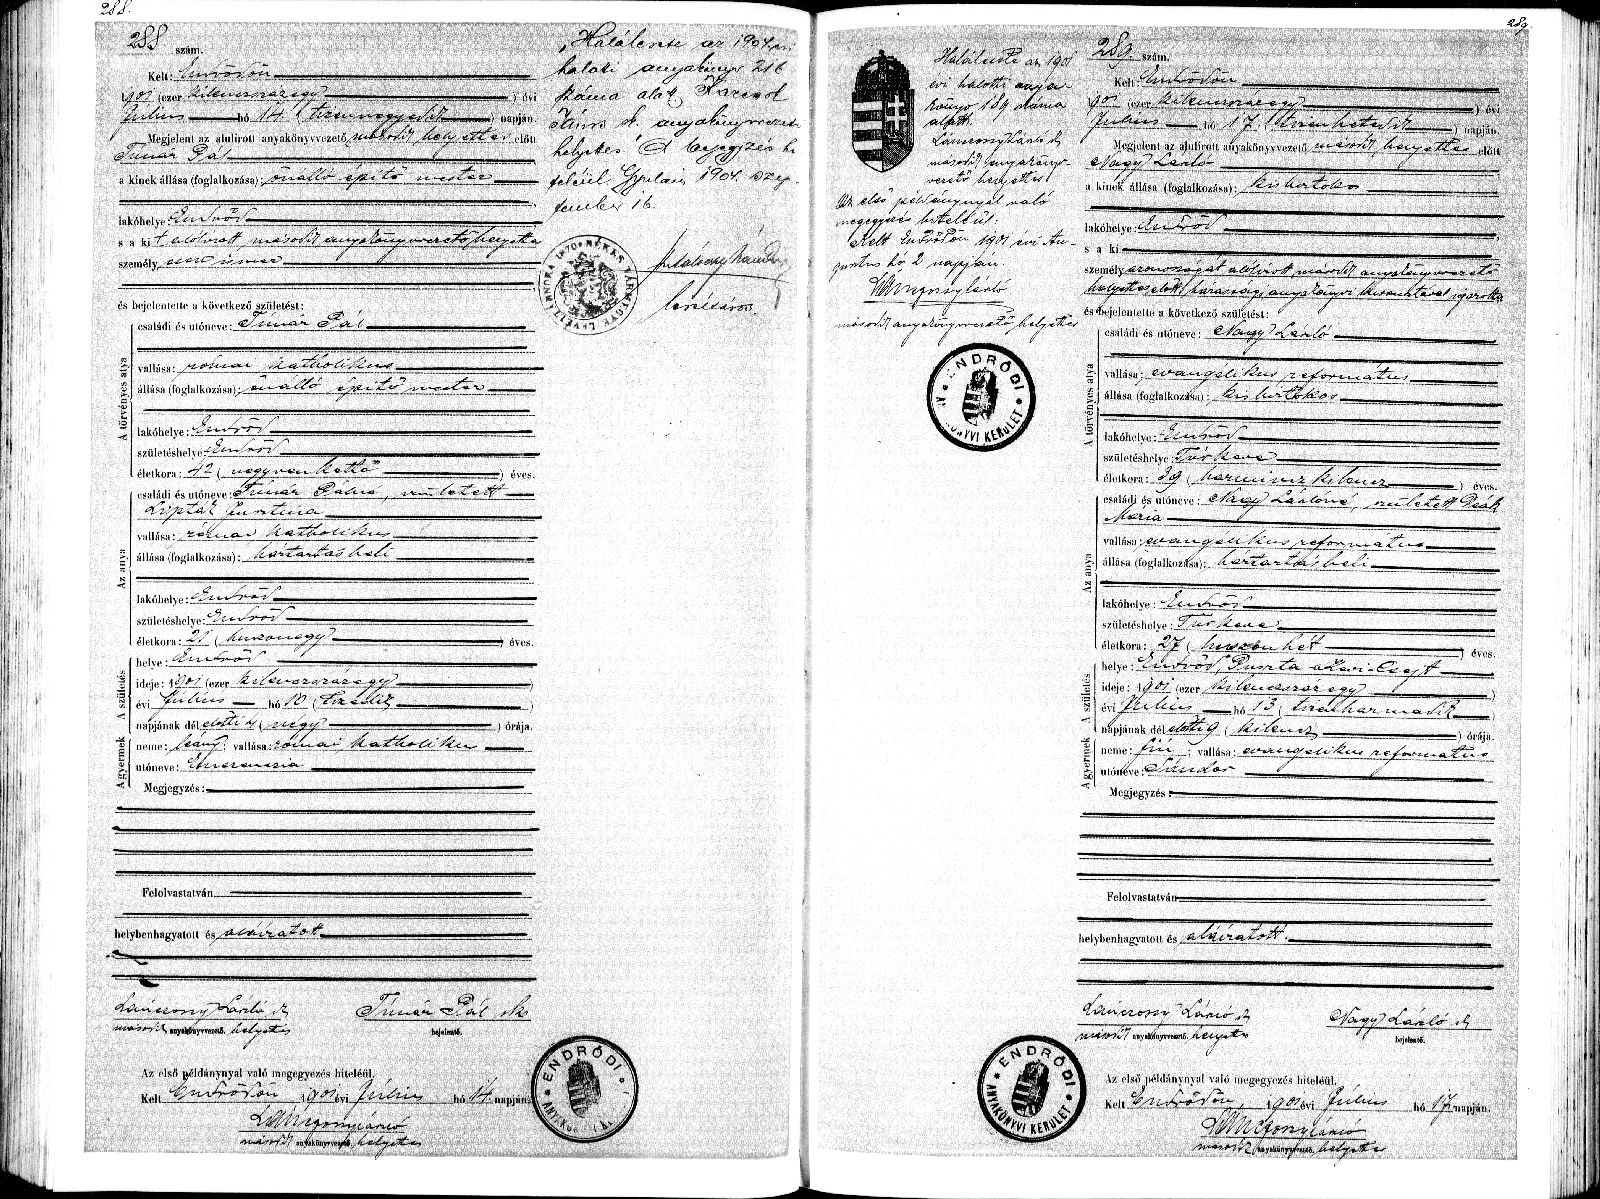 288.
288 szám.
Kelt: Endrődön
1901 (ezer kilenczszázegy) évi
Julius hó 14. (tizennegyedik) napján.
Megjelent az alulirott anyakönyvvezető, második helyettes előtt
Timár Pál
a kinek állása (foglalkozása): önálló építő mester
lakóhelye: Endrőd
s a kit alólirott, második anyakönyvvezető helyettes
személy
és bejelentette a következő születést:
A törvényes atya
családi és utóneve: Timár Pál
vallása: római katholikus
állása (foglalkozása): önálló építő mester
lakóhelye: Endrőd
születéshelye: Endrőd
életkora: 42 (negyvenkettő) éves.
Az anya
családi és utóneve: Timár Pálné, született
Lipták Jusztina
vallása: római katholikus
állása (foglalkozása): háztartásbeli
lakóhelye: Endrőd
születéshelye: Endrőd
életkora: 21 (huszonegy) éves.
A születés
helye: Endrőd
ideje: 1901 (ezer kilenczszázegy)
évi Julius hó 10 (tizedik)
napjának dél előtti 4 (négy) órája.
A gyermek
neme: leány; vallása: római katholikus
utóneve:
Megjegyzés:
Felolvastatván,
helybenhagyatott és aláiratott
Lánczony László sk
második anyakönyvvezető. helyettes
Timár Pál sk
bejelentő.
Az első példánynyal való megegyezés hiteléül.
Kelt Endrődön, 1901 évi Julius hó 14 napján.
második anyakönyvvezető. helyettes
ENDRŐDI
„Haláleste az 1904. évi
halotti anyakönyv 216
száma alatt
János sk. anyakönyvvezető
helyettes" A bejegyzés h.
teléül Gyulán, 1904. szep-
tember 16.
BÉKÉS VÁRMEGYE LEVÉLTÁRA
levéltáros
289.
Haláleste az 1901
évi halotti anya-
könyv 189 száma
alatt.
Lánczony László sk
második anyakönyv-
vezető helyettes
Az első példánynyal való
megegyezés hiteléül:
Kelt Endrődön 1901 évi Au-
gusztus hó 2 napján.
második anyakönyvvezető helyettes
ENDRŐDI ANYAKÖNYVI KERÜLET
289. szám.
Kelt: Endrődön
1901 (ezer kilenczszázegy) évi
Julius hó 17. (tizenhetedik) napján.
Megjelent az alulirott anyakönyvvezető második helyettes előtt
Nagy László
a kinek állása (foglalkozása): kisbirtokos
lakóhelye: Endrőd
s a ki
személyazonosságát alólirott második anyakönyvvezető
helyettes előtt, házassági anyakönyvi kivonatával igazolta
és bejelentette a következő születést:
A törvényes atya
családi és utóneve: Nagy László
vallása: evangélikus református
állása (foglalkozása): kisbirtokos
lakóhelye: Endrőd
születéshelye: Túrkeve
életkora: 39 (harminczkilencz) éves.
Az anya
családi és utóneve: Nagy Lászlóné, született Deák
Mária
vallása: evangélikus református
állása (foglalkozása): háztartásbeli
lakóhelye: Endrőd
születéshelye: Túrkeve
életkora: 27 (huszonhét) éves.
A születés
helye: Endrőd, Puszta
ideje: 1901 (ezer kilenczszázegy)
évi Julius hó 13 (tizenharmadik)
napjának dél előtti 9 (kilencz) órája.
A gyermek
neme: fiú; vallása: evangélikus református
utóneve: Sándor
Megjegyzés:
Felolvastatván
helybenhagyatott és aláiratott.
Lánczony László sk
második anyakönyvvezető. helyettes
Nagy László sk
bejelentő.
Az első példánynyal való megegyezés hiteléül.
Kelt Endrődön, 1901 évi Julius hó 17 napján.
második anyakönyvvezető. helyettes
ENDRŐDI ANYAKÖNYVI KERÜLET